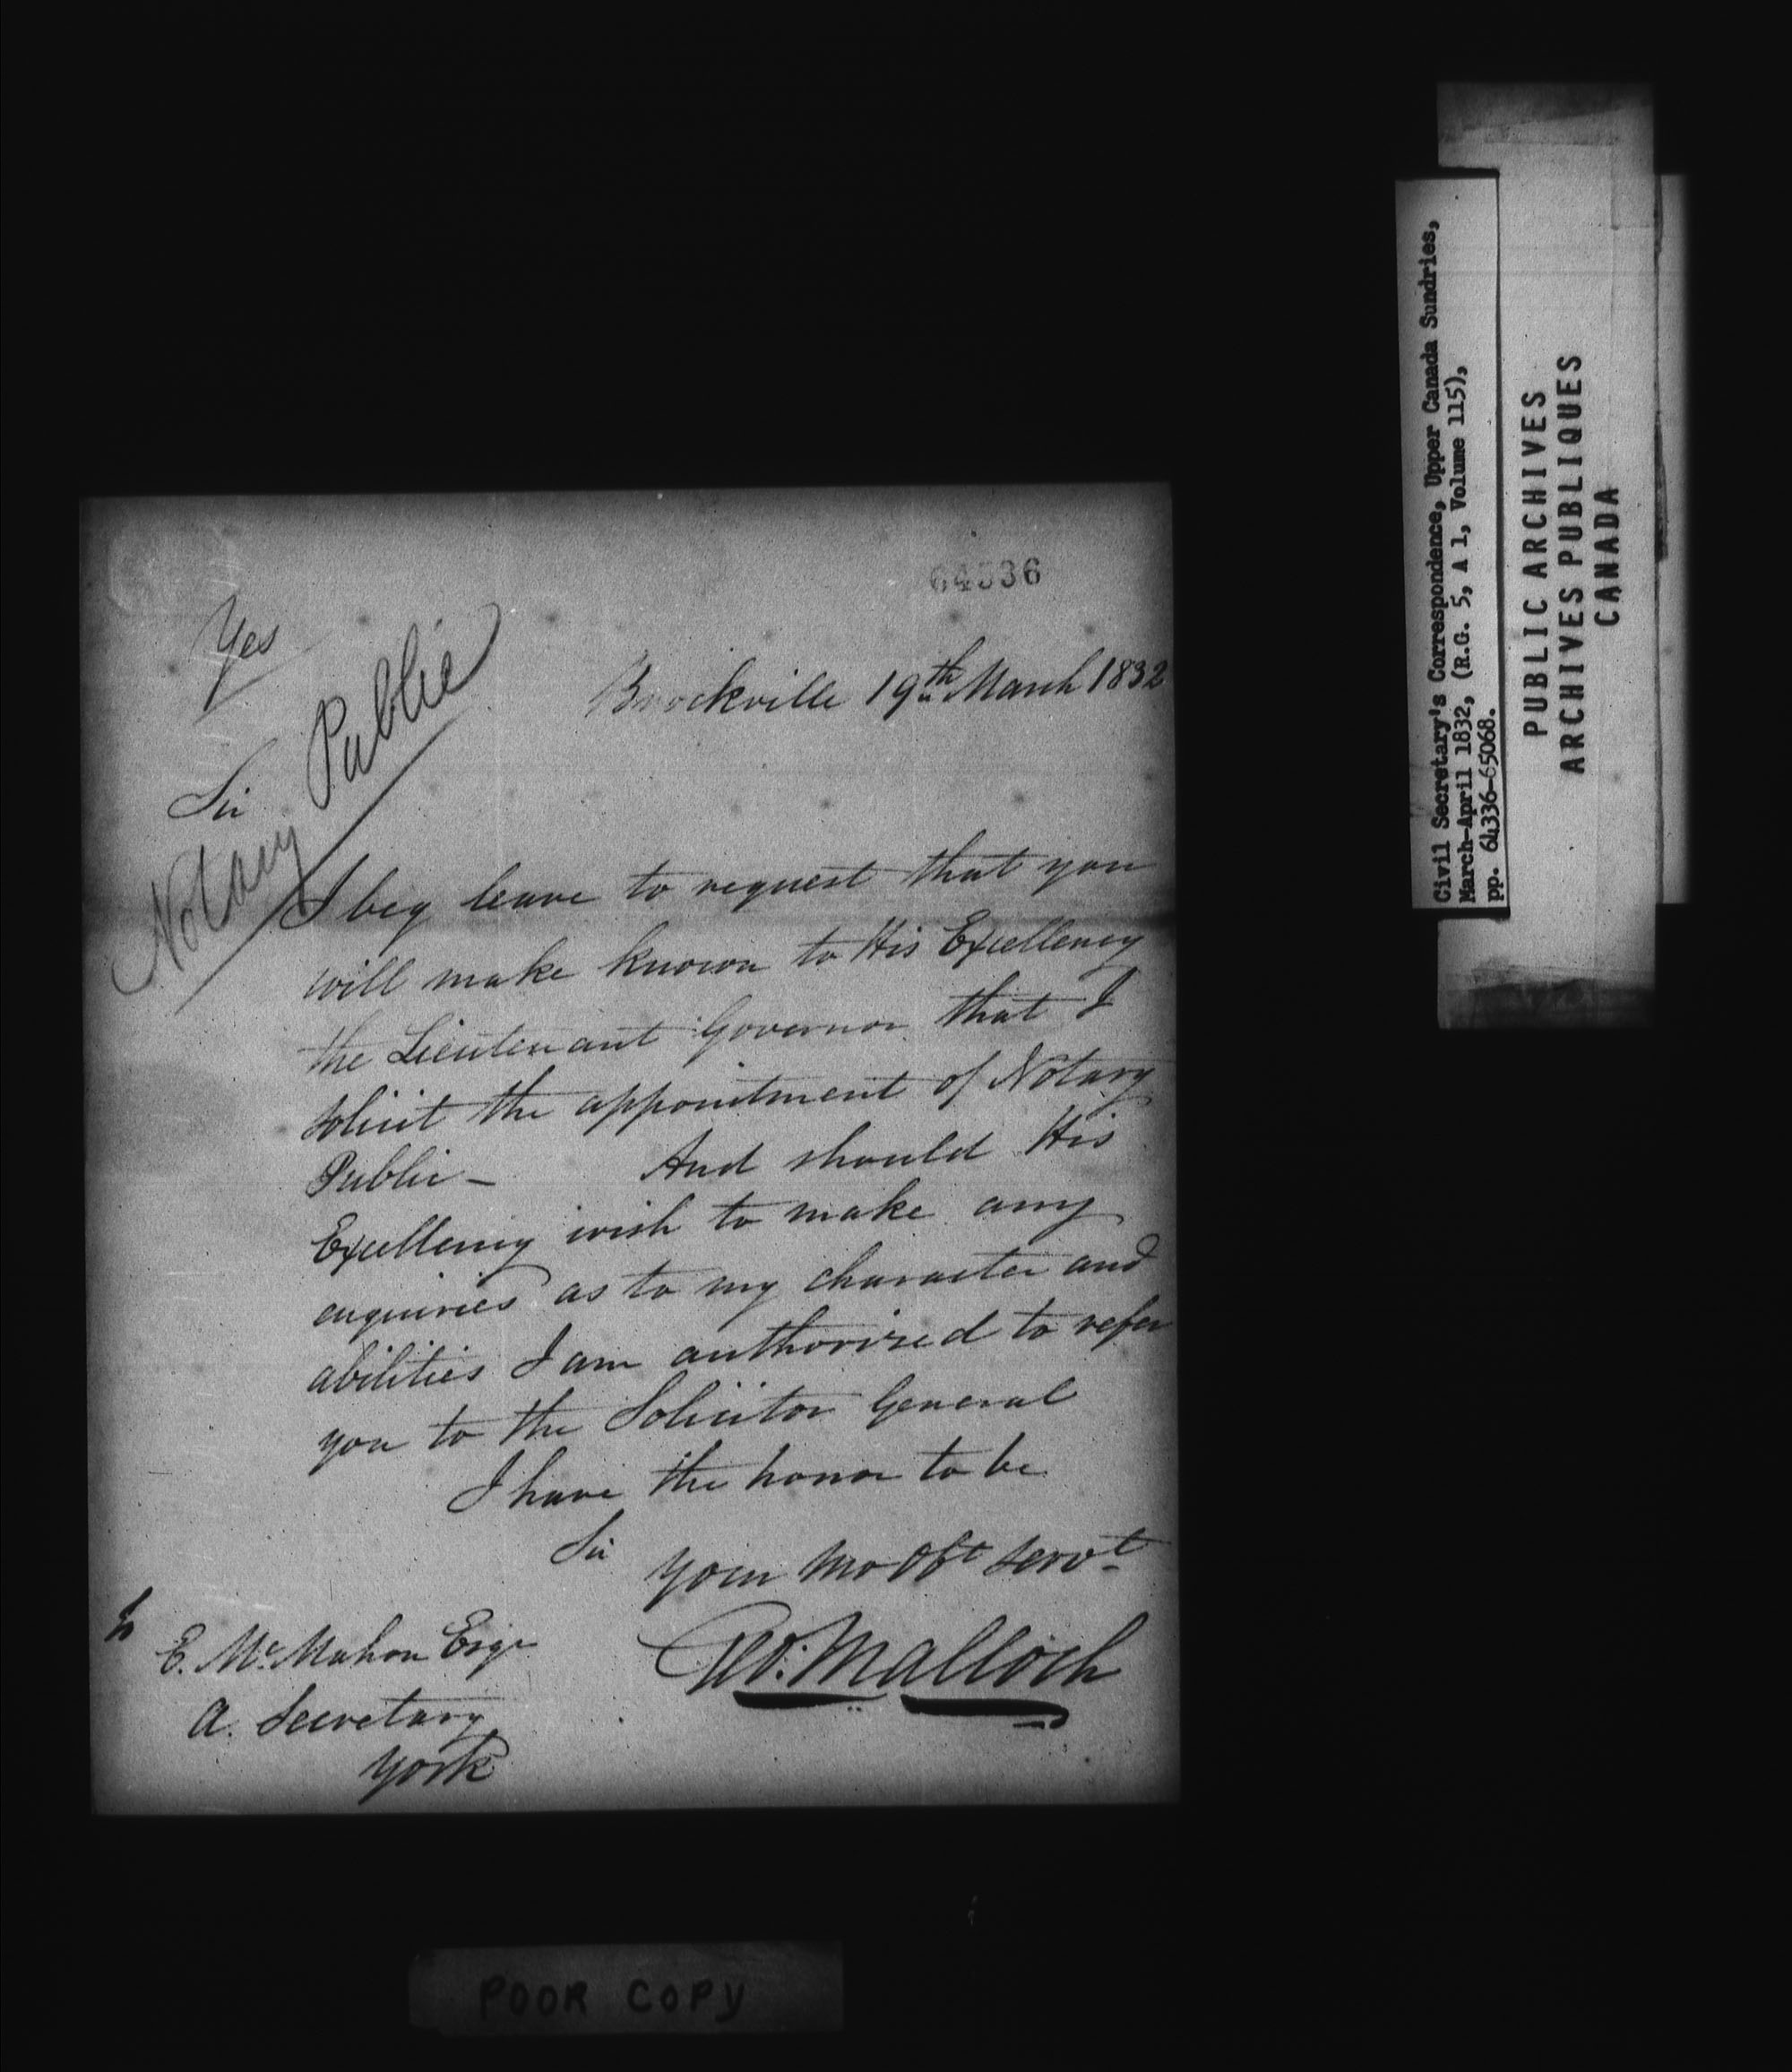 64536
Yes
Notary Public
Brockville 19th March 1832
Sir
I beg leave to request that you
will make known to His Excellency
the Lieutenant Governor that I
solicit the appointment of Notary
Public – And should His
Excellency wish to make any
enquiries as to my character and
abilities I am authorized to refer
you to the Solicitor General
I have the honor to be
Sir
your mo Obt servt
Geo: Malloch
To
E. McMahon Esqr
A. Secretary
York
Civil Secretary's Correspondence, Upper Canada Sundries,
March-April 1832, (R.G. 5, A 1, Volume 115),
pp. 64336-65068.
PUBLIC ARCHIVES
ARCHIVES PUBLIQUES
CANADA
POOR COPY